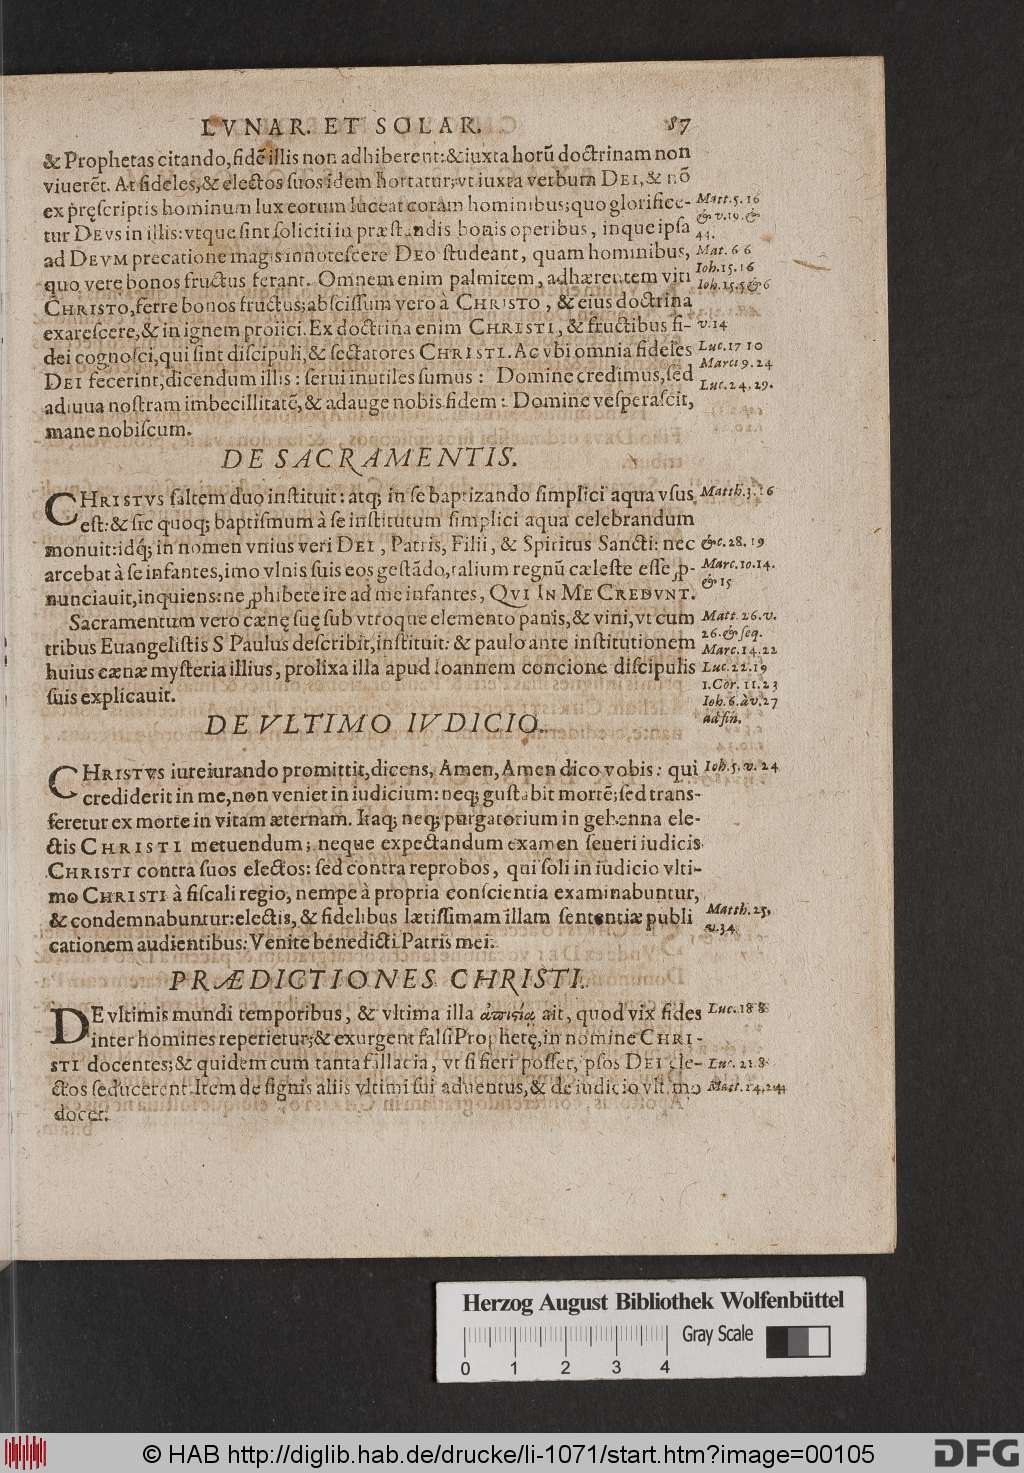 LVNAR. ET SOLAR. 87
& Prophetas citando, fidē illis non adhiberent: & iuxta horū doctrinam non
viuerēt. At fideles, & electos suos idem hortatur; vt iuxta verbum DEI, & nō
ex pręscriptis hominum lux eorum luceat coram hominibus; quo glorifice-
tur DEVS in illis: vtque sint soliciti in præstandis bonis operibus, inque ipsa
ad DEVM precatione magis innotescere DEO studeant, quam hominibus,
quo vere bonos fructus ferant. Omnem enim palmitem, adhærentem viti
CHRISTO, ferre bonos fructus; abscissum vero à CHRISTO, & eius doctrina
exarescere, & in ignem proiici. Ex doctrina enim CHRISTI, & fructibus fi-
dei cognosci, qui sint discipuli, & sectatores CHRISTI. Ac vbi omnia fideles
DEI fecerint, dicendum illis: serui inutiles sumus: Domine credimus, sed
adiuua nostram imbecillitatē, & adauge nobis fidem: Domine vesperascit,
mane nobiscum.
Matt. 5. 16
& v. 19. &
44.
Mat. 6 6
Ioh. 15. 16
Ioh. 15. 5 & 6
v. 14
Luc. 17 10
Marci 9. 24
Luc. 24. 29.
DE SACRAMENTIS.
CHRISTVS saltem duo instituit: atq; in se baptizando simplici aqua vsus
est: & sic quoq; baptismum à se institutum simplici aqua celebrandum
monuit: idq́; in nomen vnius veri DEI, Patris, Filii, & Spiritus Sancti: nec
arcebat à se infantes, imo vlnis suis eos gestādo, talium regnū cæleste esse ꝓ-
nunciauit, inquiens: ne ꝓhibete ire ad me infantes, QVI IN ME CREDVNT.
Sacramentum vero cænę suę sub vtroque elemento panis, & vini, vt cum
tribus Euangelistis S Paulus describit, instituit: & paulo ante institutionem
huius cænæ mysteria illius, prolixa illa apud Ioannem concione discipulis
suis explicauit.
Matth. 3. 16
&c. 28. 19
Marc. 10. 14.
& 15
Matt. 26. v.
26. & seq.
Marc. 14. 22
Luc. 22. 19
1. Cor. 11. 23
Ioh. 6. à v. 27
ad fin.
DE VLTIMO IVDICIO.
CHRISTVS iureiurando promittit, dicens, Amen, Amen dico vobis: qui
crediderit in me, non veniet in iudicium: neq; gustabit mortē; sed trans-
feretur ex morte in vitam æternam. Itaq; neq; purgatorium in gehenna ele-
ctis CHRISTI metuendum; neque expectandum examen seueri iudicis
CHRISTI contra suos electos: sed contra reprobos, qui soli in iudicio vlti-
mo CHRISTI à fiscali regio, nempe à propria conscientia examinabuntur,
& condemnabuntur: electis, & fidelibus lætissimam illam sententiæ publi
cationem audientibus: Venite benedicti Patris mei.
Ioh. 5. v. 24
Matth. 25,
v. 34
PRÆDICTIONES CHRISTI.
DE vltimis mundi temporibus, & vltima illa ἀπιστίᾳ ait, quod vix fides
inter homines reperietur; & exurgent falsi Prophetę, in nomine CHRI-
STI docentes; & quidem cum tanta fallacia, vt si fieri posset, ipsos DEI ele-
ctos seducerent. Item de signis aliis vltimi sui aduentus, & de iudicio vltimo
docet.
Luc. 18 8
Luc. 21. 8
Matt. 24. 24
Herzog August Bibliothek Wolfenbüttel
Gray Scale
0 1 2 3 4
© HAB http://diglib.hab.de/drucke/li-1071/start.htm?image=00105
DFG